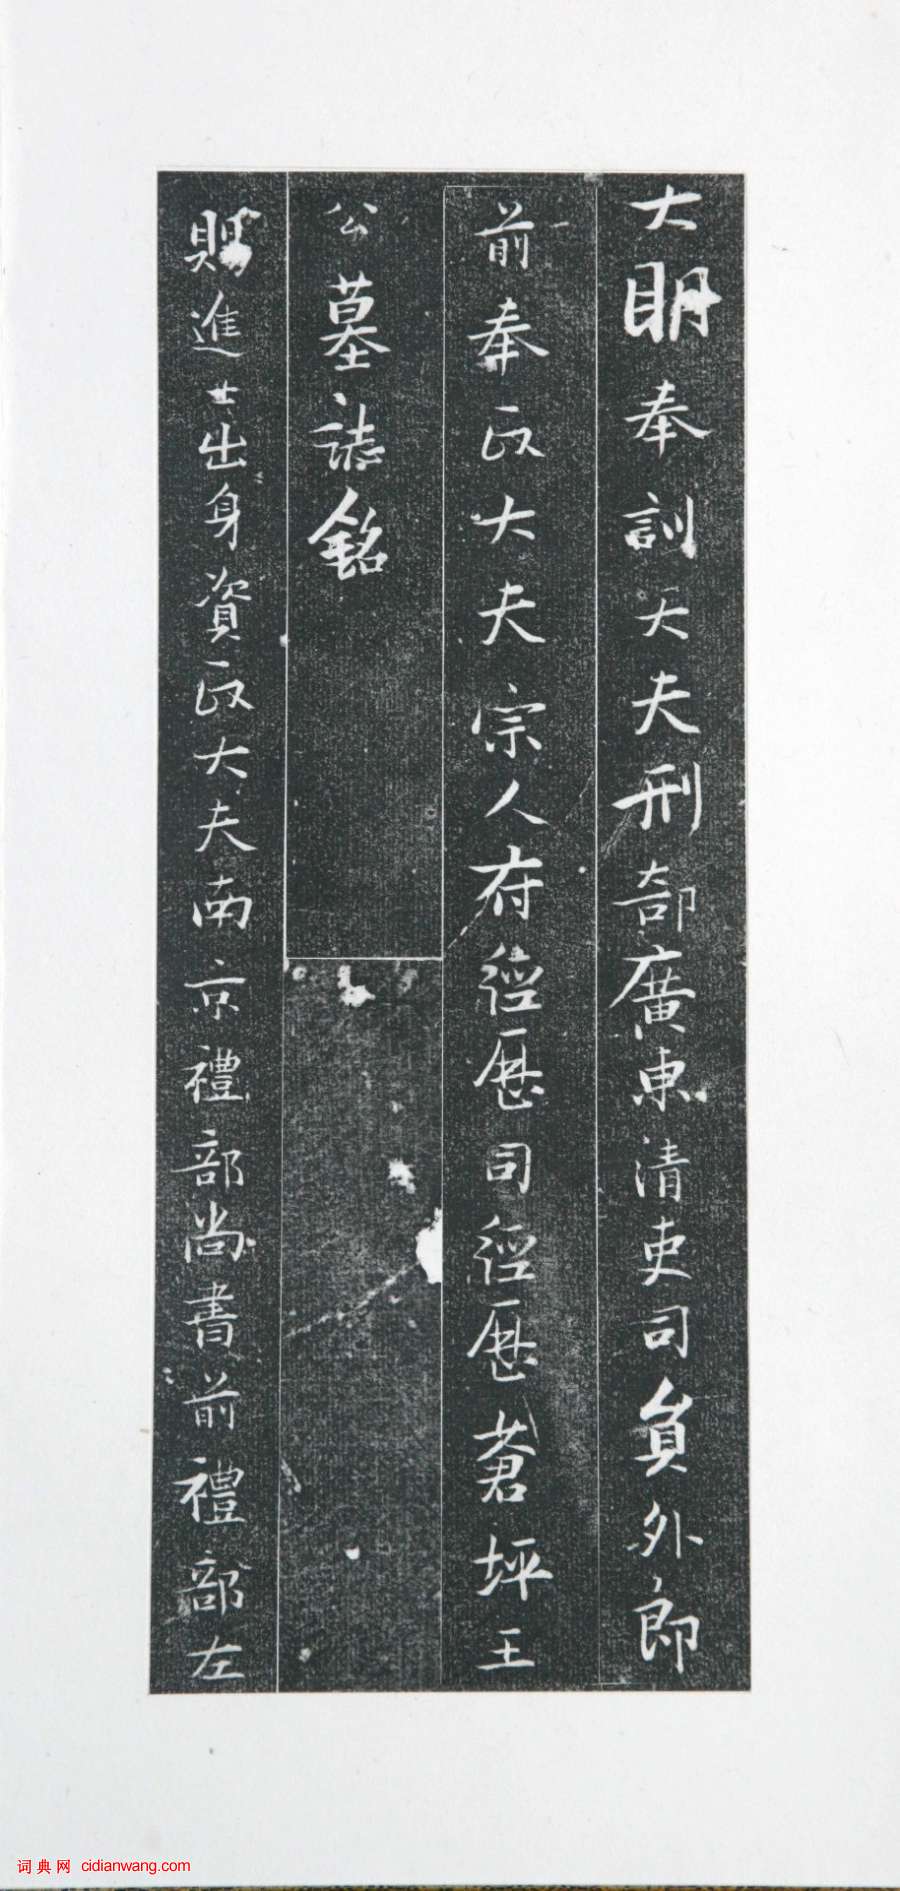 大明奉訓大夫刑部廣東清吏司員外郎
前奉政大夫宗人府經歷司經歷蒼坪王
公墓誌銘
賜進士出身資政大夫南京禮部尚書前禮部左
词典网 cidianwang.com